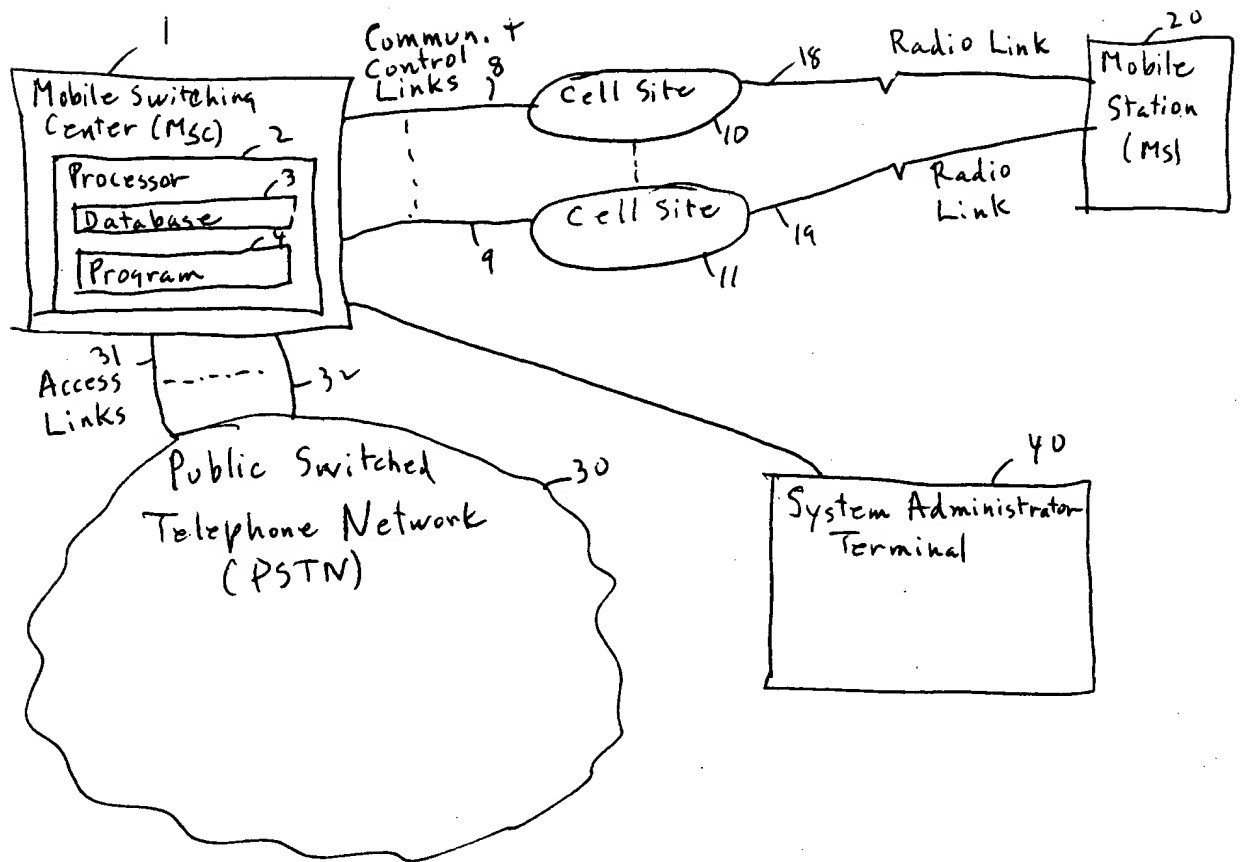 1
Mobile Switching
Center (MSC)
2
Processor
3
Database
4
Program
Commun. +
Control
Links
8
9
Cell Site
10
Cell Site
11
18
Radio Link
19
Radio
Link
20
Mobile
Station
(MS)
31
Access
Links
32
Public Switched
Telephone Network
(PSTN)
30
40
System Administrator
Terminal